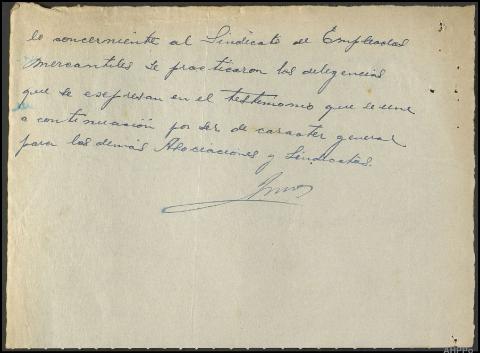 lo concerniente al Sindicato de Empleados
Mercantiles se practicaron las delegencias
que se esepresan en el testemomo que se une
a continuación por ser de caracter general
para las demás Asociaciones y Sindicatos.
AHPPo